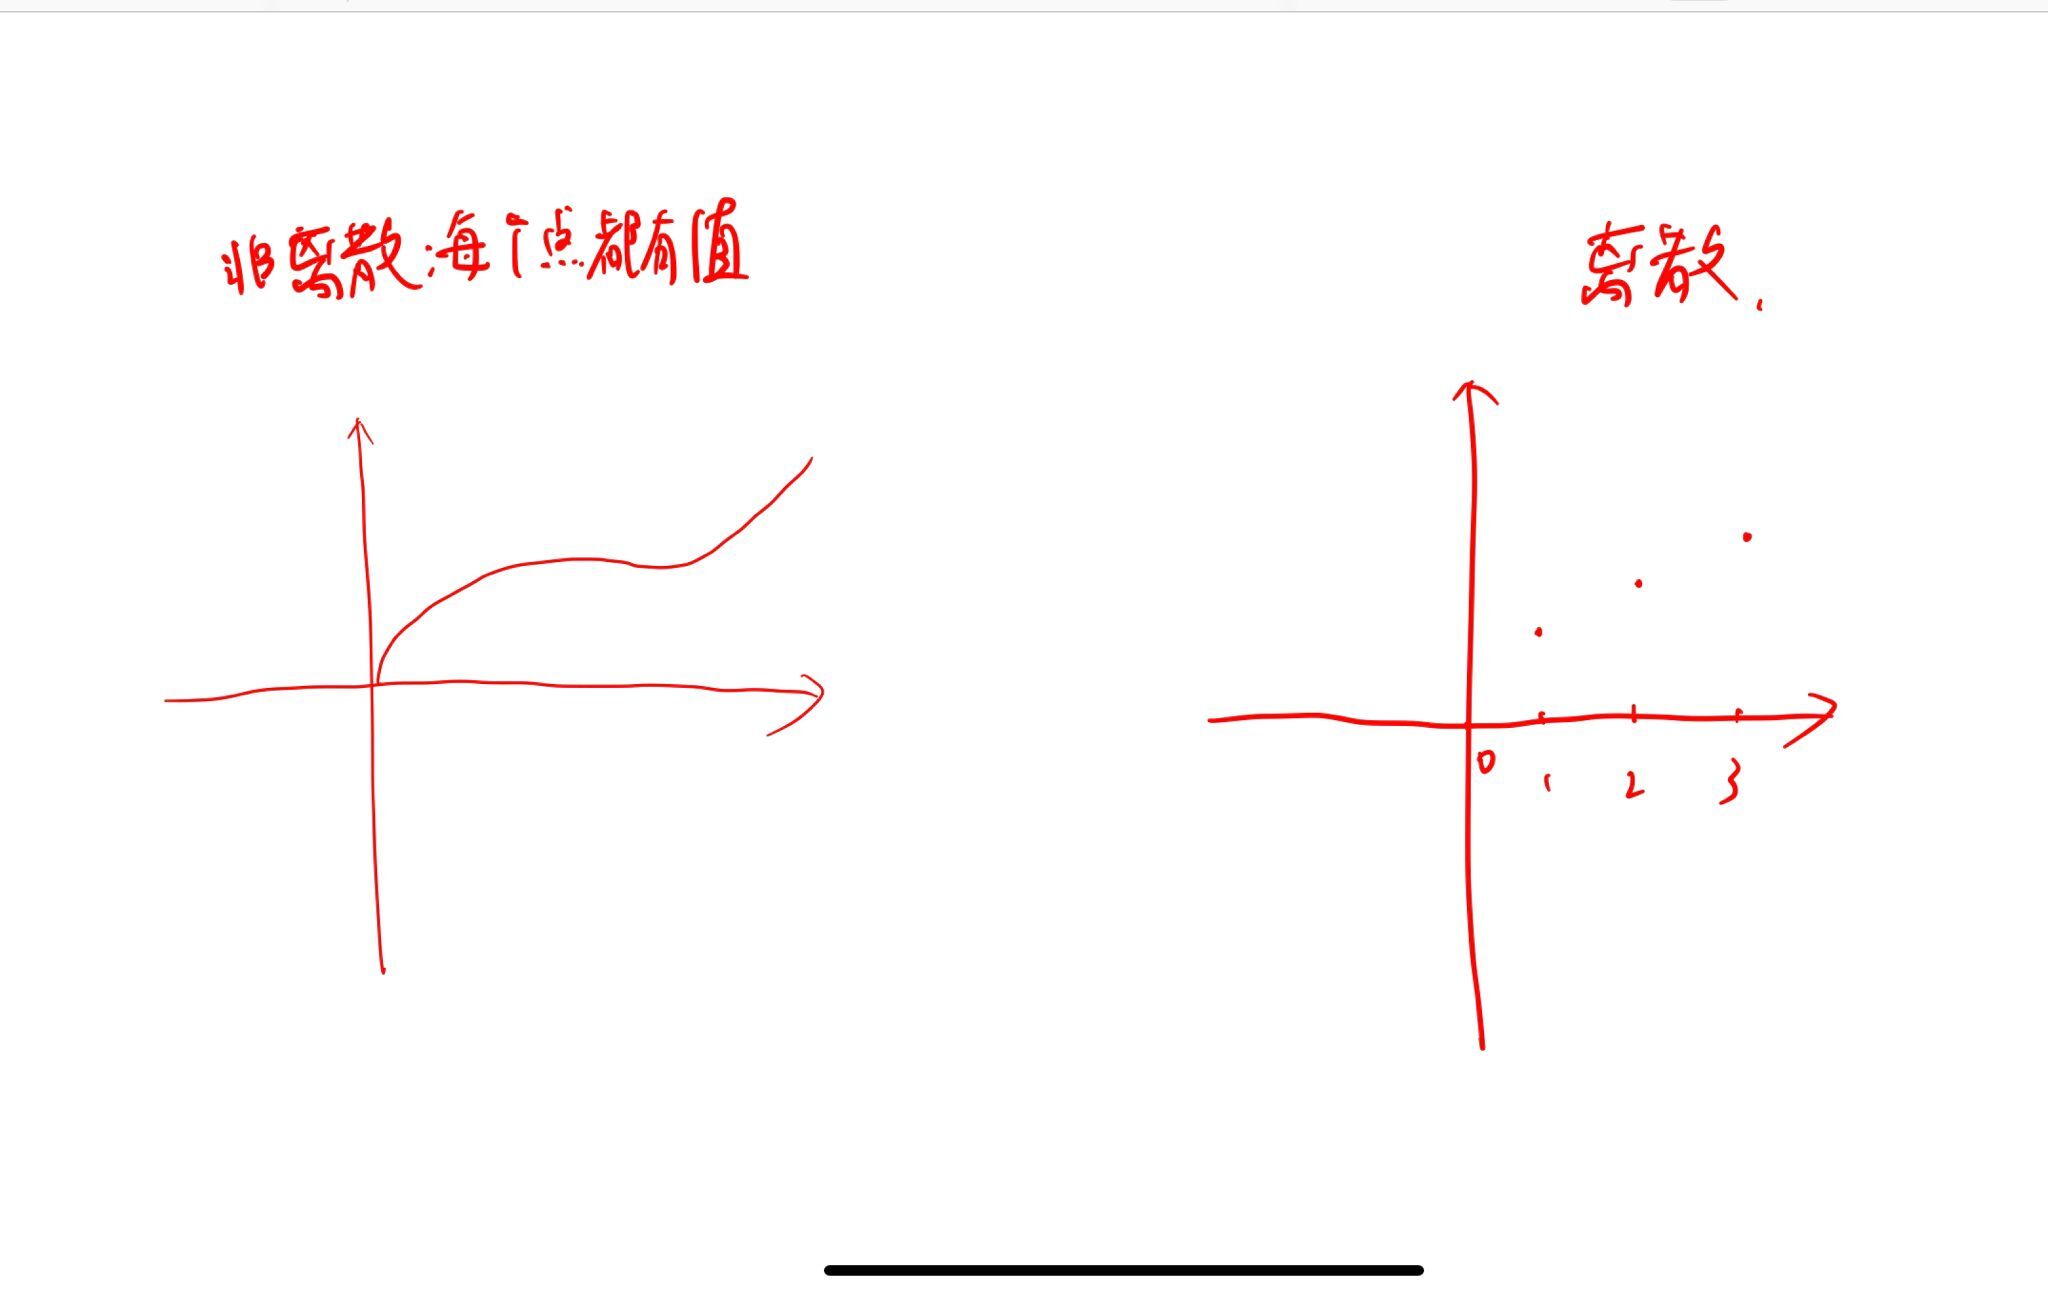 非离散:每个点都有值
离散.
0
1
2
3